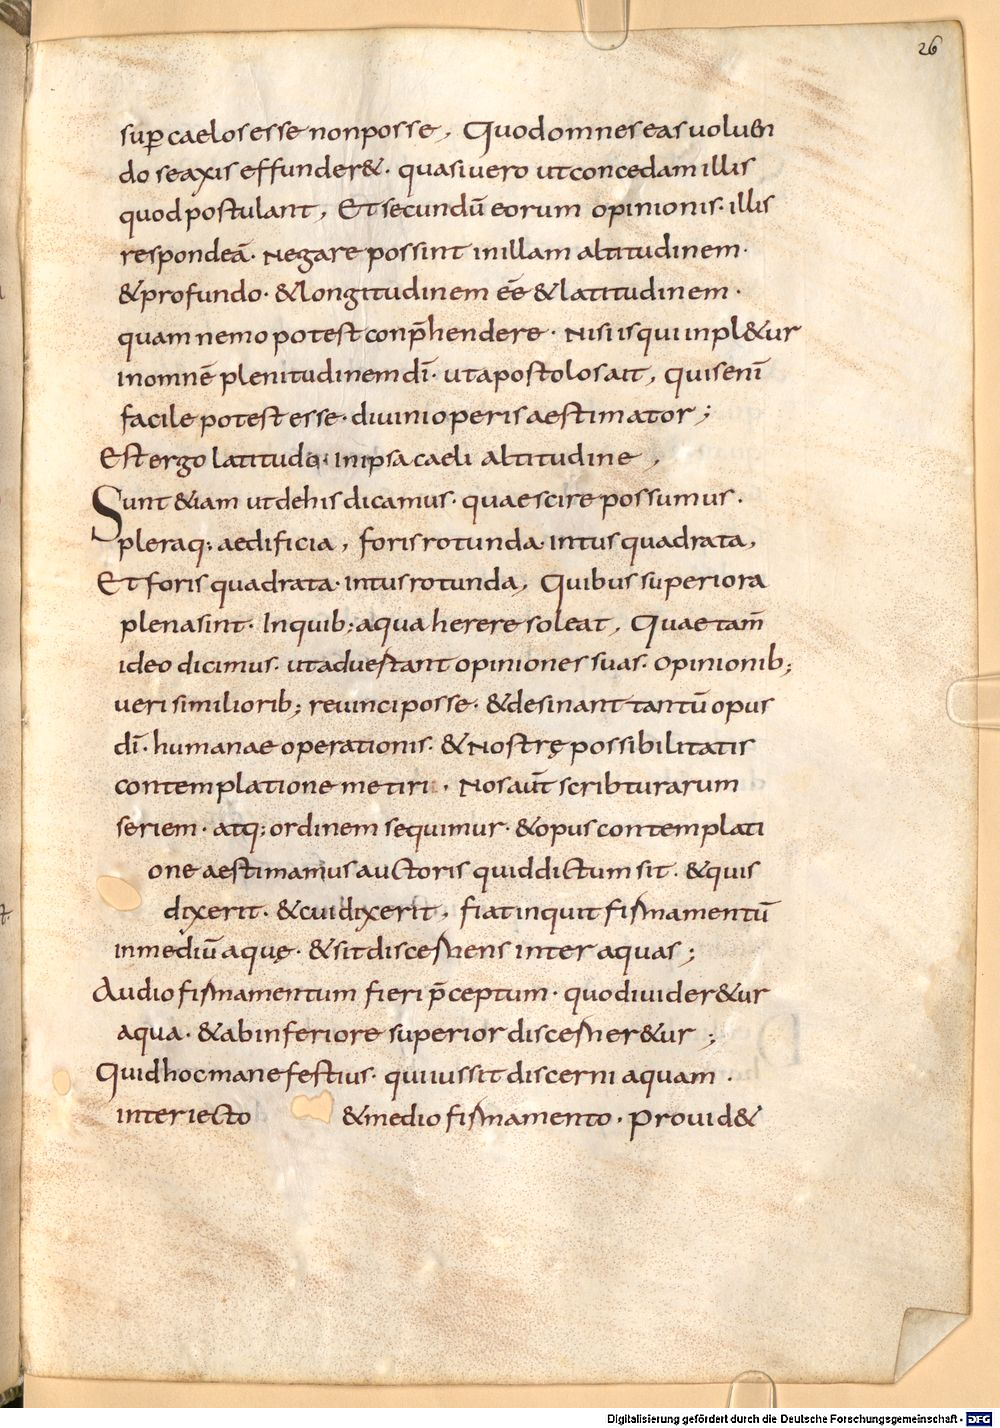 26
sup̱ caelos esse non posse, Quod omnes eas uoluen
do se axis effunder&. quasi uero ut concedam illis
quod postulant, Et secundū eorum opinionis. illis
respondeā. Negare possint in illam altitudinem.
& profundo. & longitudinem eē & latitudinem.
quam nemo potest conp̄hendere. Nisi is qui inpl&ur
in omnē plenitudinem dī. ut apostolos ait, quis enī
facile potest esse. diuini operis aestimator;
Est ergo latitudo. in ipsa caeli altitudine,
Sunt &iam ut de his dicamus. quae scire possumus.
pleraq; aedificia, foris rotunda. intus quadrata,
Et foris quadrata. intus rotunda, Quibus superiora
plena sint. In quib; aqua herere soleat, Quae tam̄
ideo dicimus. ut aduertant opiniones suas. opinionib;
ueri similiorib; reuinci posse. & desinant tantū opus
dī. humanae operationis. & Nostrę possibilitatis
contemplatione metiri. Nos aūt scribturarum
seriem. atq; ordinem sequimur. & opus contemplati
one aestimamus auctoris quid dictum sit. & quis
dixerit. & cui dixerit, fiat inquit firmamentū
in mediū aquę. & sit discernens inter aquas;
Audio firmamentum fieri p̄ceptum. quo diuider&ur
aqua. & ab inferiore superior discerner&ur;
Quid hoc manefestius. qui iussit discerni aquam.
interiecto & medio firmamento. Prouid&
Digitalisierung gefördert durch die Deutsche Forschungsgemeinschaft - DFG